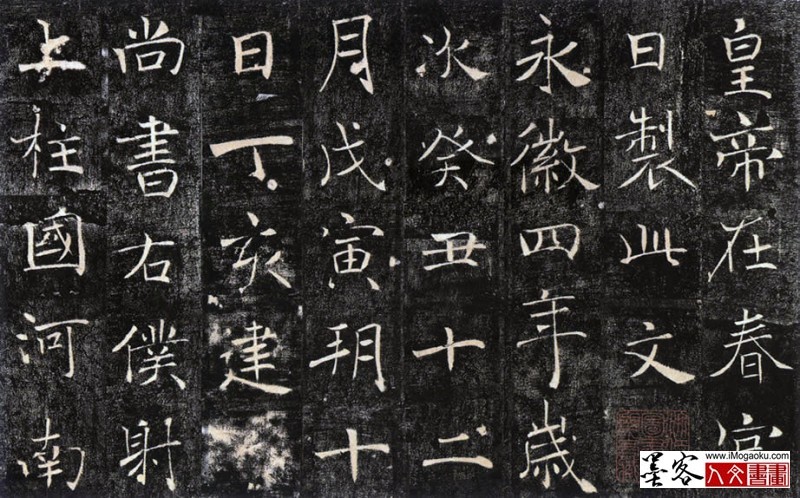 皇帝在春宮
日製此文
永徽四年歲
次癸丑十二
月戊寅朔十
日丁亥建
尚書右僕射
上柱國河南
www.iMogaoku.com
墨客
人文書畫